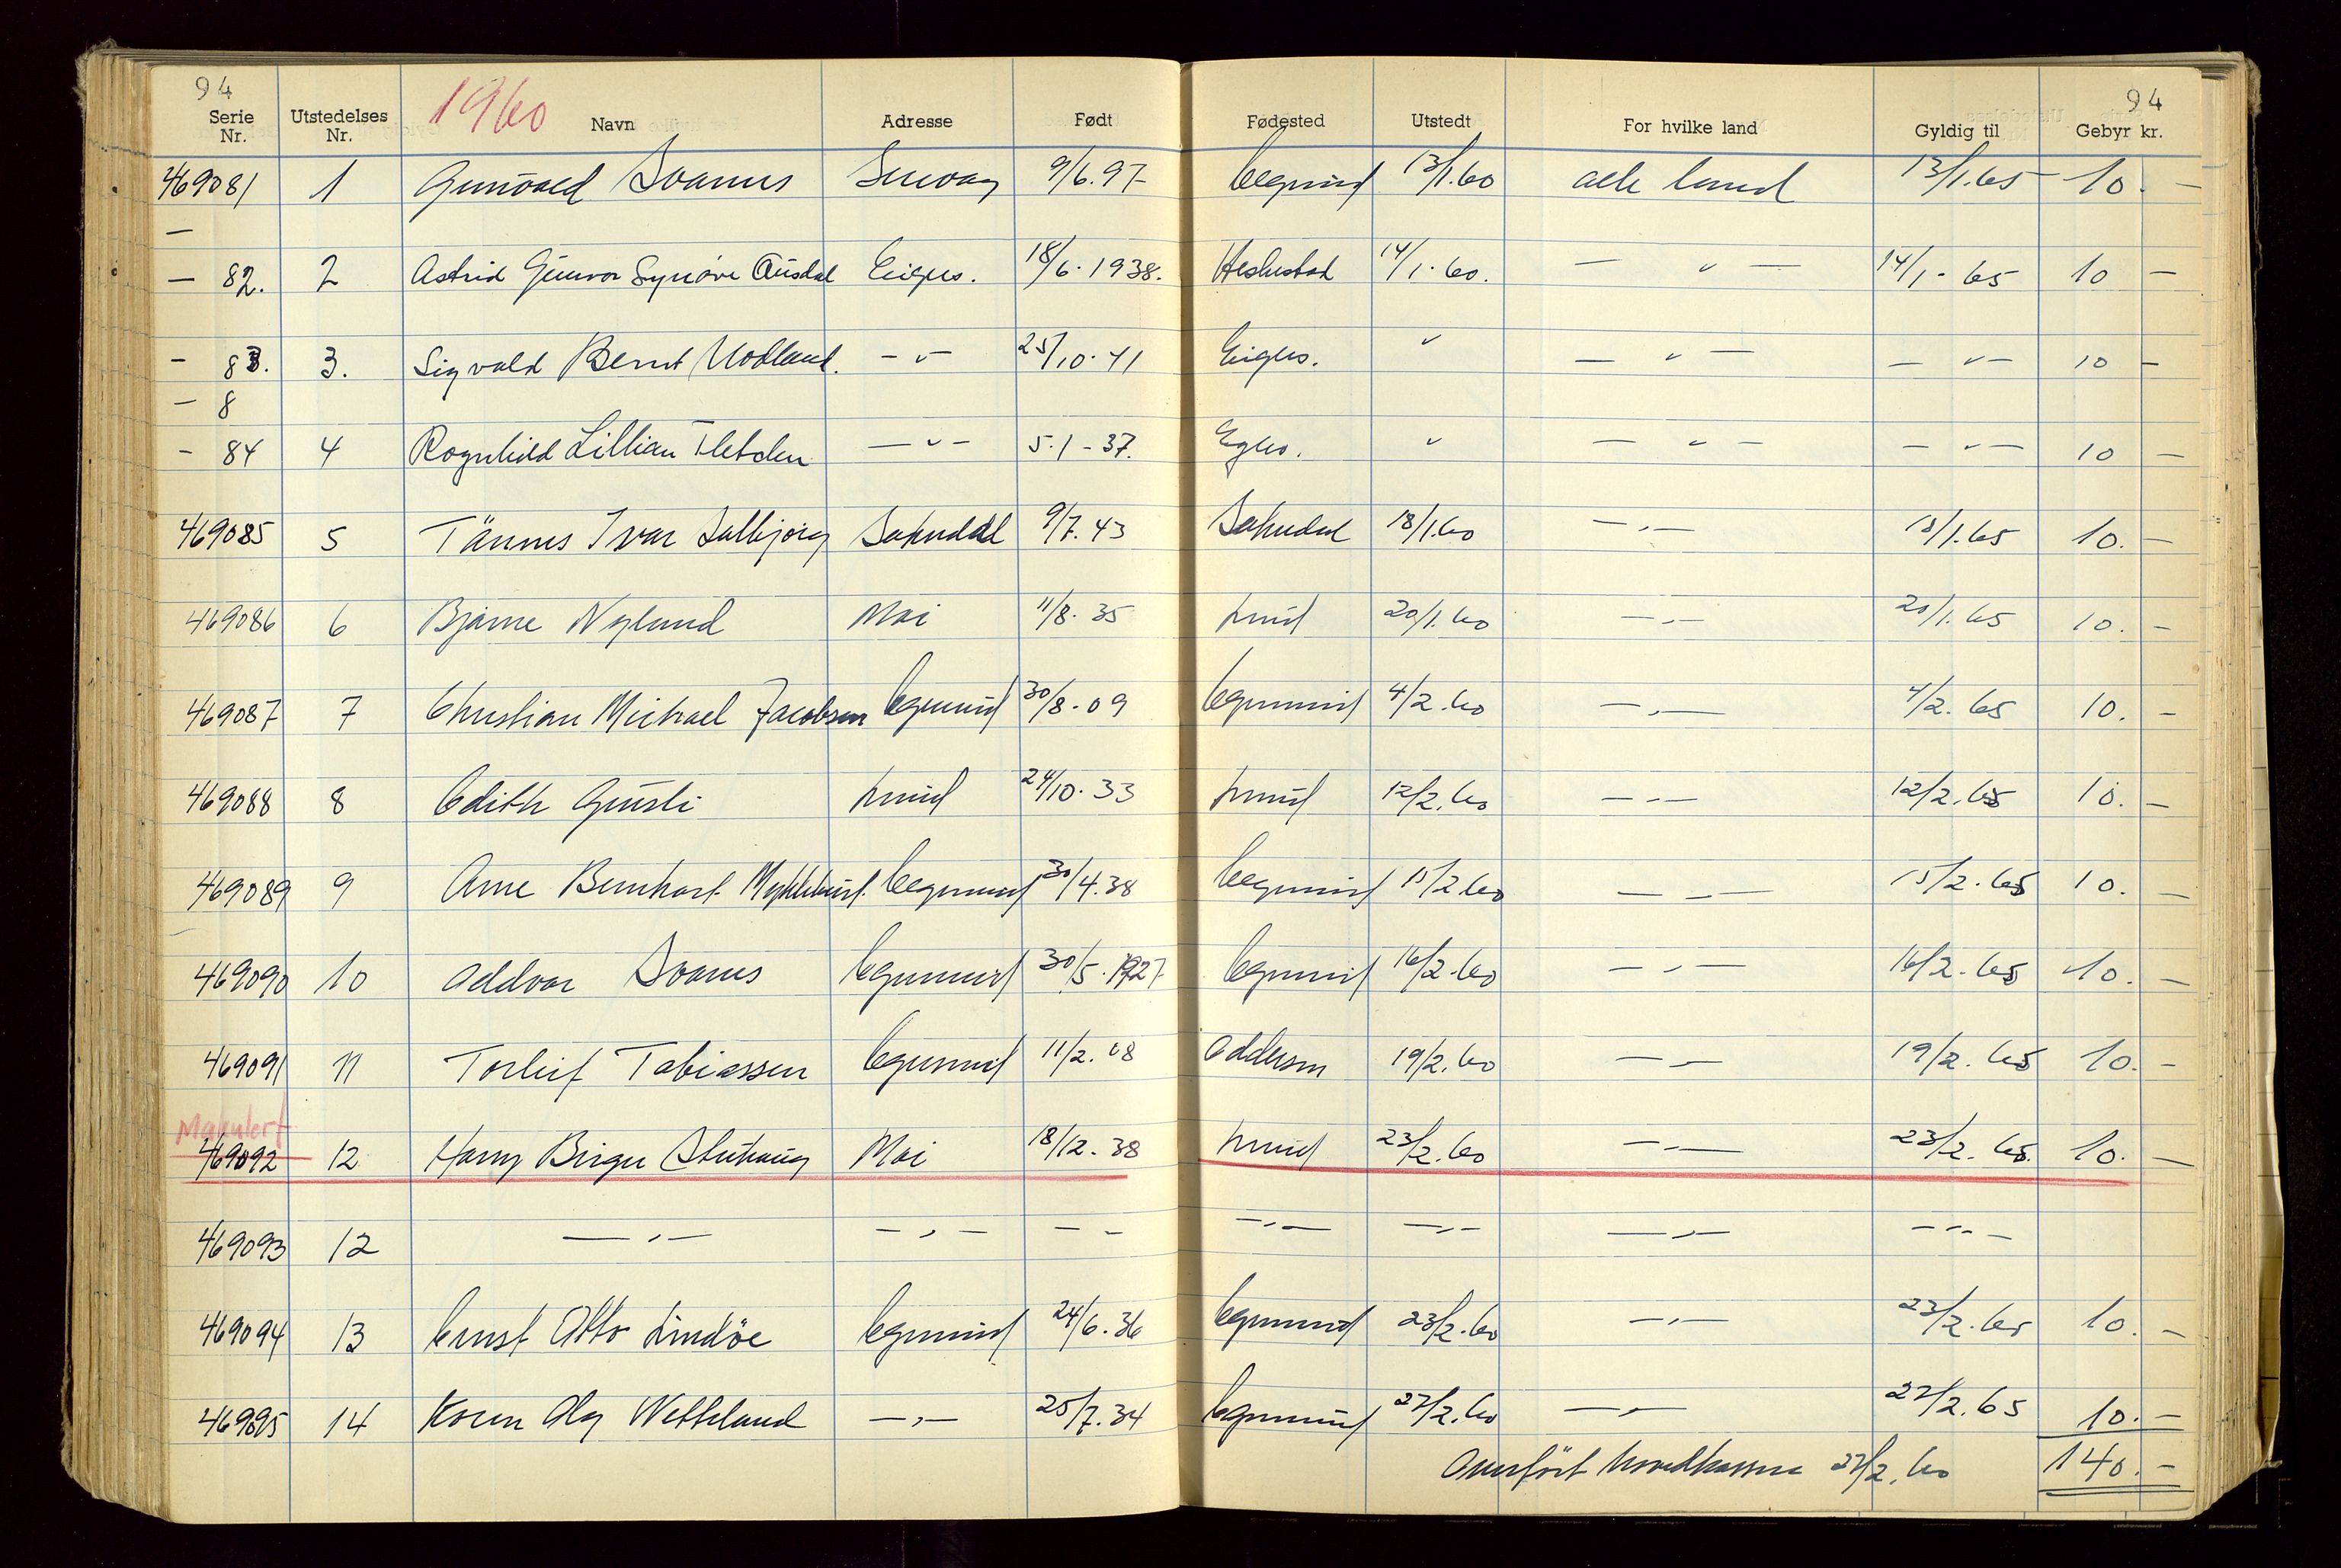 94 94
Serie Nr. Utstedelses Nr. 1960 Navn Adresse Født Fødested Utstedt For hvilke land Gyldig til Gebyr kr.
469081 1 Gunvald Svanes 9/6.97 Egersund 13/1.60 alle land 13/1.65 10.-
—
- 82. 2 Astrid Gunvor Synøve Ausdal Eigers. 18/6.1938. Heskestad 14/1.60. - " - 14/1-65 10 -
- 83. 3. Sigvald Bernt Modland. - " - 25/10.41 Eigers. " - " - - " - 10 -
- 8
- 84 4 Ragnhild Lillian - " - 5.1-37. Egers. " - " - - " - 10 -
469085 5 Tännes Ivar Salbjørg Sokndal 9/7.43 Sokndal 18/1.60 - " - 18/1.65 10.-
469086 6 Bjarne Nylund Moi 11/8.35 Lund 20/1.60 - " - 20/1.65 10.-
469087 7 Christian Michael Jacobsen Egersund 30/8.09 Egersund 4/2.60 - " - 4/2.65 10.-
469088 8 Edith Gursli Lund 24/10.33 Lund 12/2.60 - " - 12/2.65 10.-
469089 9 Arne Bernhart Myklebust. Egersund 30/4.38 Egersund 15/2.60 - " - 15/2.65 10.-
469090 10 Oddvar Svanes Egersund 30/5.1927 Egersund 16/2.60 - " - 16/2.65 10.-
469091 11 Torleif Tobiassen Egersund 11/2.08 Oddersn 19/2.60 - " - 19/2.65 10.-
Makulert
469092 12 Harry Birger Moi 18/12.38 Lund 23/2.60 - " - 23/2.65. 10.-
469093 12 - " - - " - - - - " - - " - - " - - " -
469094 13 Ernst Otto Lindöe Egersund 24/6.36 Egersund 23/2.60 - " - 23/2.65 10.-
469095 14 Karen Olg Wetteland - " - 25/7.34 Egersund 27/2.60 - " - 27/2.65 10.-
Overført hovedkassen 27/2.60 140.-